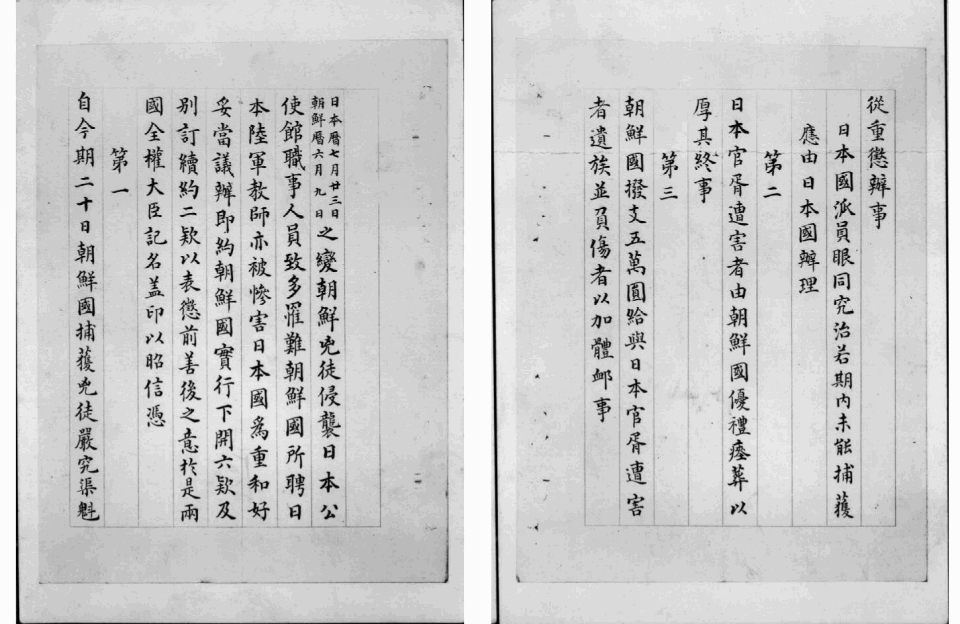 日本曆七月廿三日
朝鮮曆六月九日
之變朝鮮兇徒侵襲日本公
使館職事人員致多罹難朝鮮國所聘日
本陸軍教師亦被慘害日本國爲重和好
妥當議辦即約朝鮮國實行下開六欵及
別訂續約二欵以表懲前善後之意於是兩
國全權大臣記名盖印以昭信憑
第一
自今期二十日朝鮮國捕獲兇徒嚴究渠魁
從重懲辦事
日本國派員眼同究治若期內未能捕獲
應由日本國辦理
第二
日本官胥遭害者由朝鮮國優禮瘞葬以
厚其終事
第三
朝鮮國撥支五萬圓給與日本官胥遭害
者遺族並負傷者以加體卹事